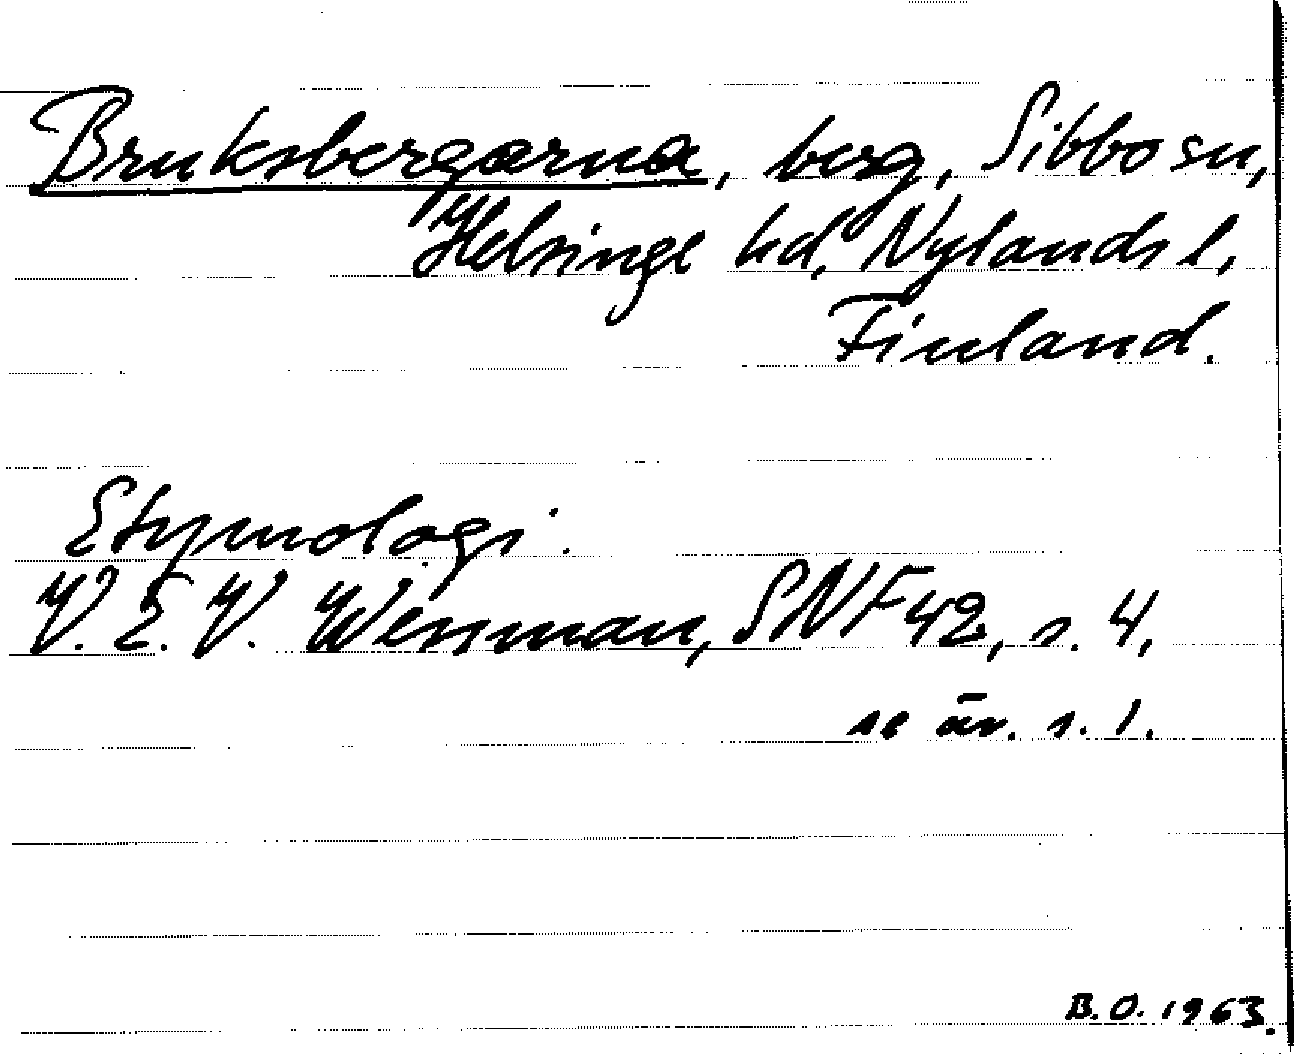 Bruksbergarna, berg, Sibbo sn,
Helsinge hd, Nylands l,
Finland.
Etymologi:
V. E. V. Wessman, SNF 42, s. 4,
se äv. s. 1.
B. O. 1963.